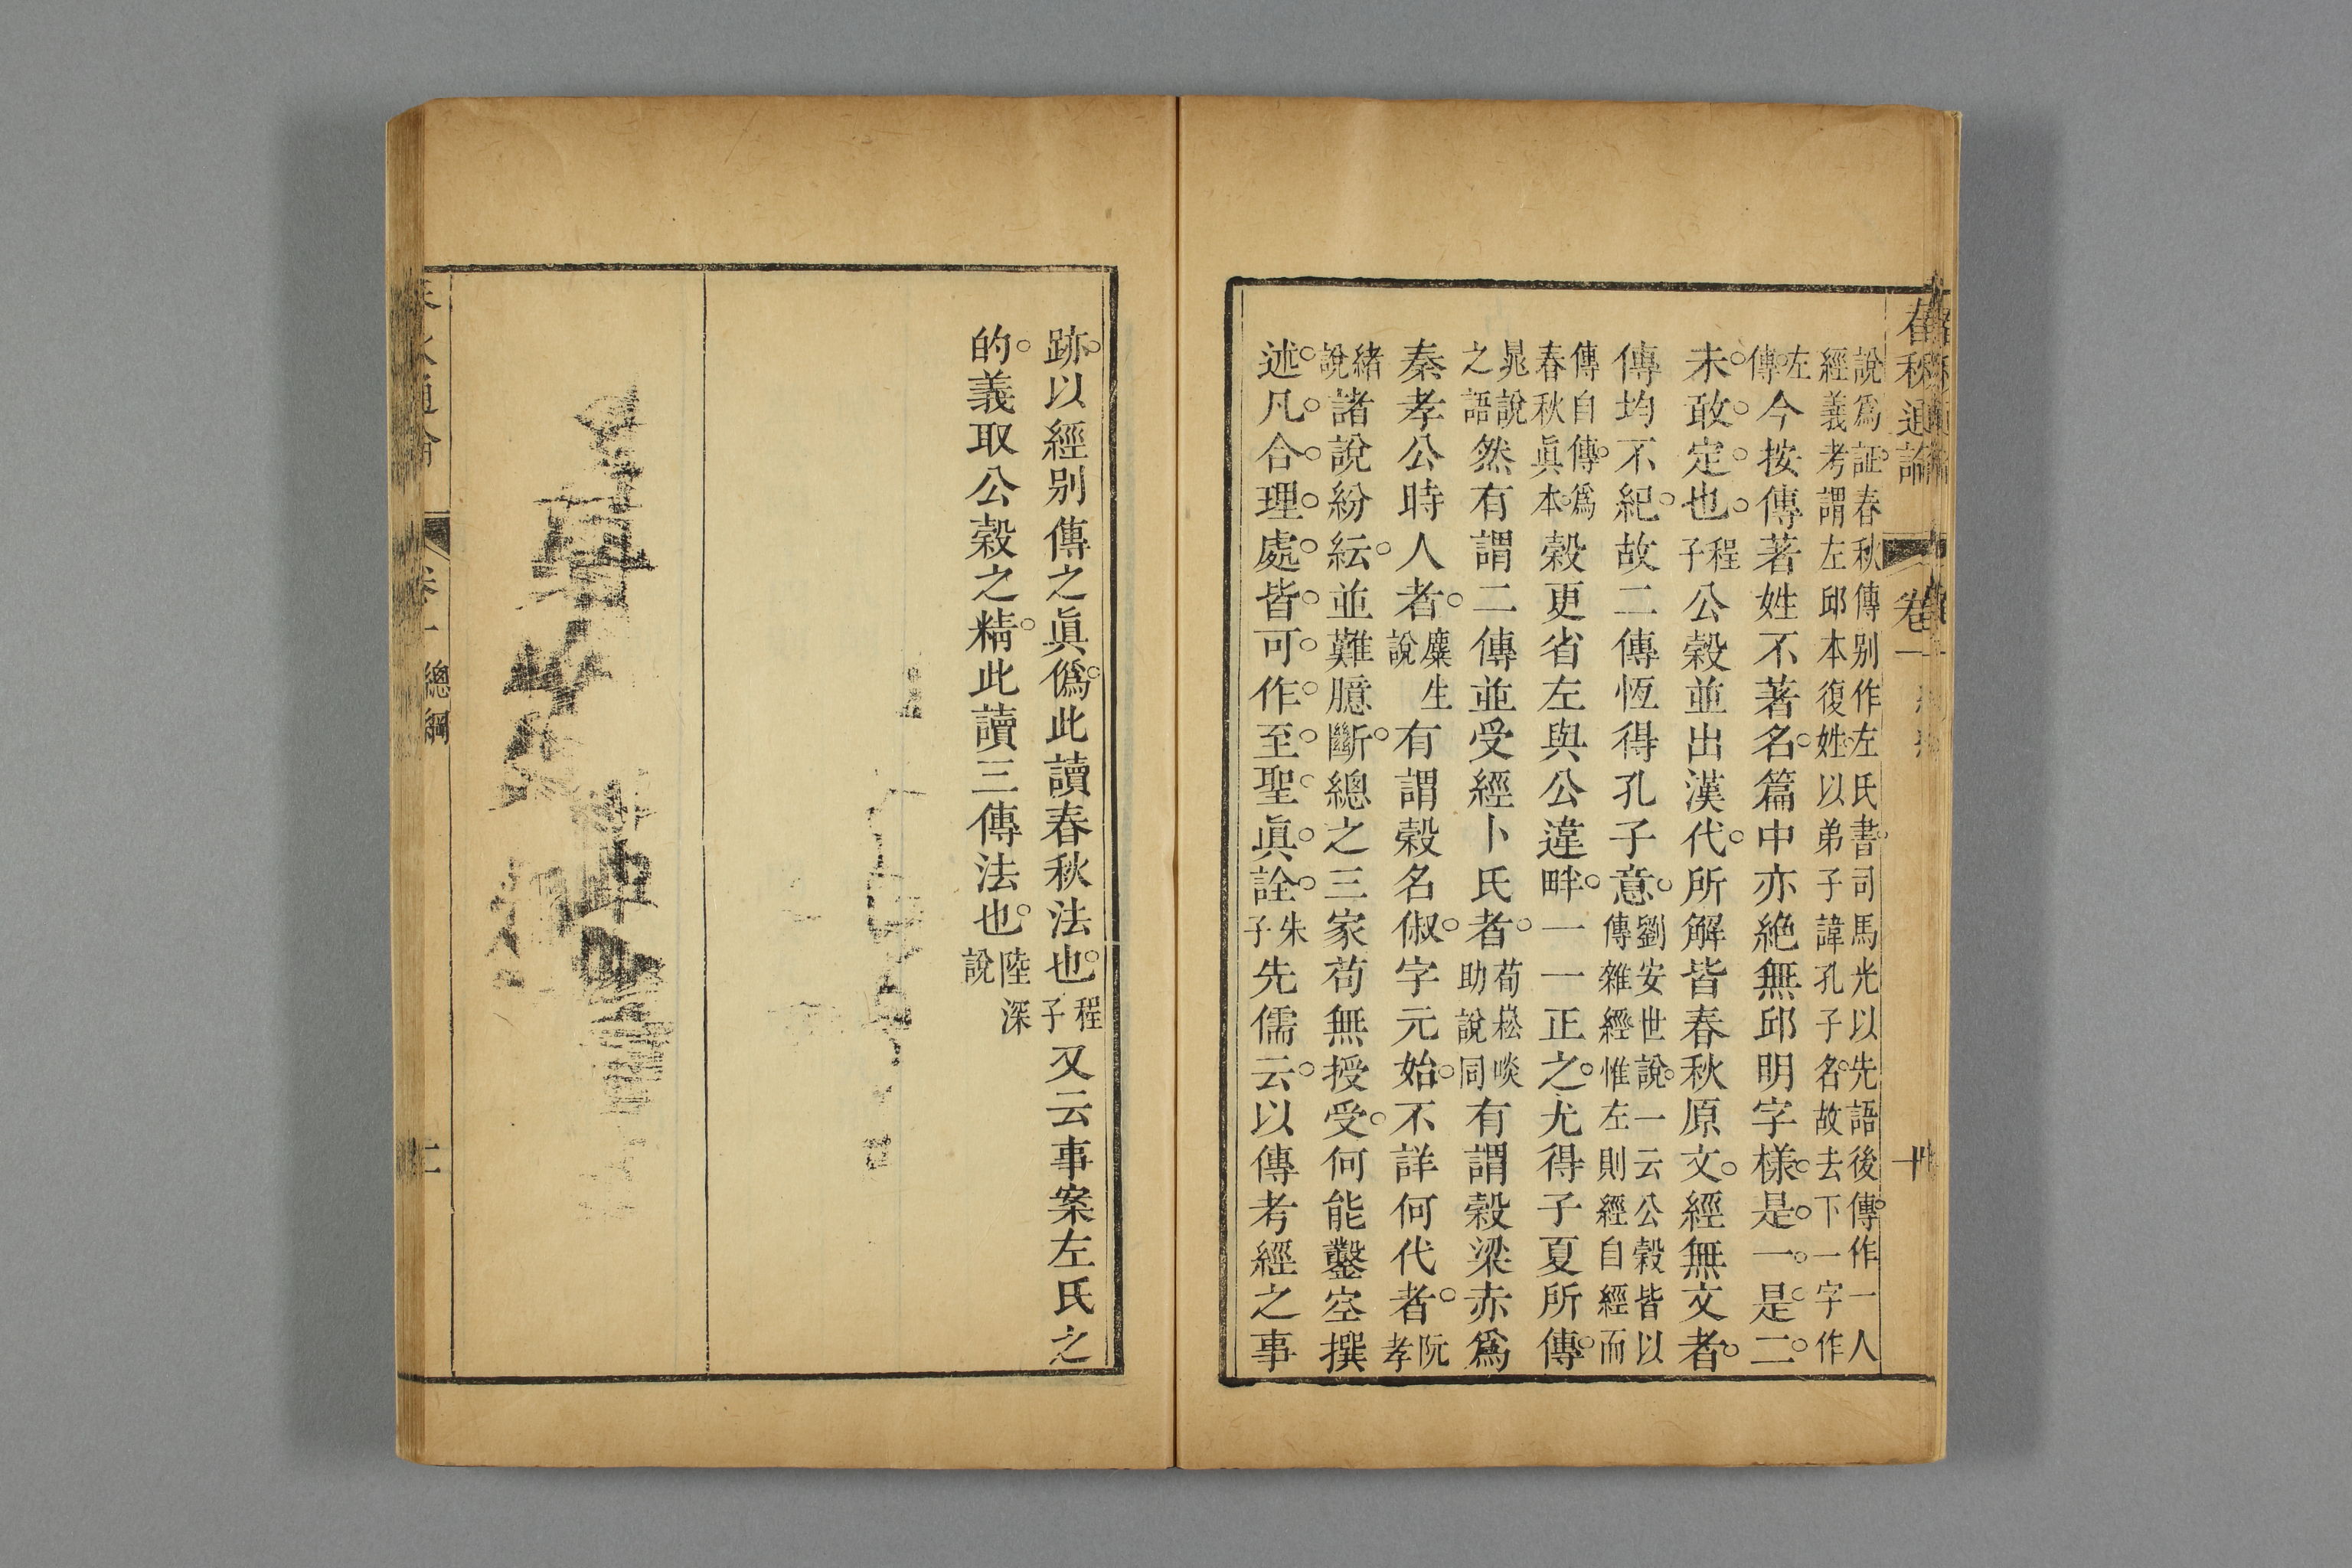 春秋通論 卷一
說爲証春秋傳别作左氏書司馬光以先語後傳作一人
經義考謂左邱本復姓以弟子諱孔子名故去下一字作
左傳今按傳著姓不著名篇中亦絶無邱明字樣是一是二
未敢定也程子公榖並出漢代所解皆春秋原文經無文者
傳均不紀故二傳恆得孔子意劉安世說一云公榖皆以傳雜經惟左則經自經而
傳自傳爲春秋眞本榖更省左與公違畔一一正之尤得子夏所傳
晁說之語然有謂二傳並受經卜氏者荀崧啖助說同有謂榖梁赤爲
秦孝公時人者麋生說有謂榖名俶字元始不詳何代者阮孝
緒說諸說紛紜並難臆斷總之三家苟無授受何能鑿空撰
述凡合理處皆可作至聖眞詮朱子先儒云以傳考經之事
跡以經别傳之眞僞此讀春秋法也程子又云事案左氏之
的義取公榖之精此讀三傳法也陸深說
卷一 總綱